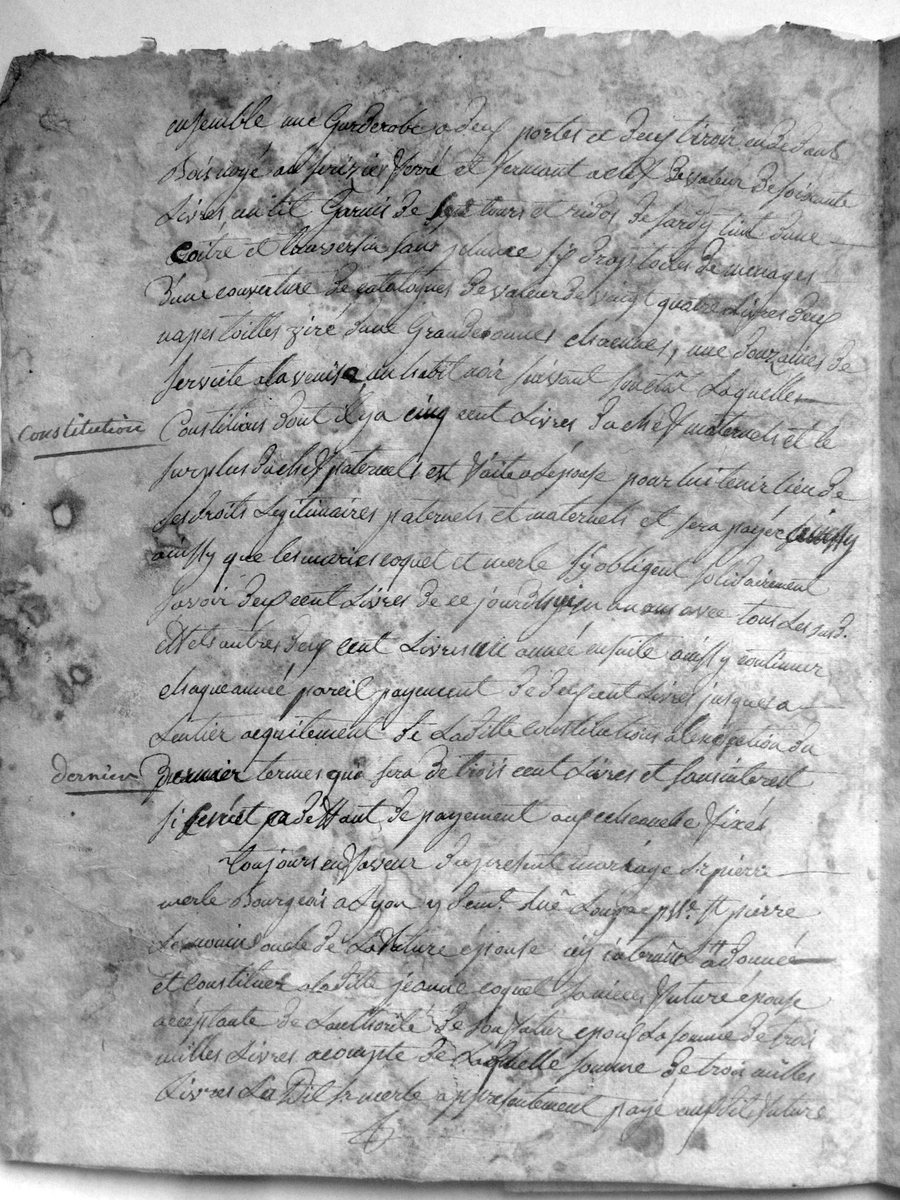 ensemble une Garderobe a deux portes et deux tiroir en dedans
Bois noyé ou serizier ferré et fermant a clef de valeur de soisante
Livres un lit Garnis de tours et ridos de sardy lint dune
Coitre et traversin sans plume six draps toiles de menages
dune couverture de catalogues de valeur de vaingt quatre Livres deux
napes toilles ziré dune Grande chacunes, une douzaines de
serviete a la venise un habit noir suivant son état Laquelles
Constitution
Constitions dont il y a cinq cent Livres du chef maternels et le
surplus du chef paternels est faite a lépouse pour lui tenir lieu de
ses droits Legitimaires paternels et maternels et sera payer
ainssy que les maries coquet et merle sy obligent solidairement
savoir deux cent Livres de ce jourdhuy en un ans avec tous les susd.
Et et autres deux cent Livres une année ensuite ainssy continuer
chaque année pareil payement de deux cent Livres jusques a
Lentier acquitement de Laditte constitutions a lexception du
dernier
premier termes qui sera de trois cent Livres et sans interest
si ce n'est a deffaut de payement aux echeanche fixés
toujours en faveur du present mariage Sr pierre
merle Bourgeois a Lyon y demt. Ruë Longue psse. St pierre
Le oncle de La future epouse a donnée
et constituer a laditte jeanne coquet sa nieces future épouse
accéptante de Lauthorité de son futur epoux La somme de trois
milles Livres a compte de Laquelle somme de trois milles
Livres Le Dit Sr merle a presentement payé ausdit future